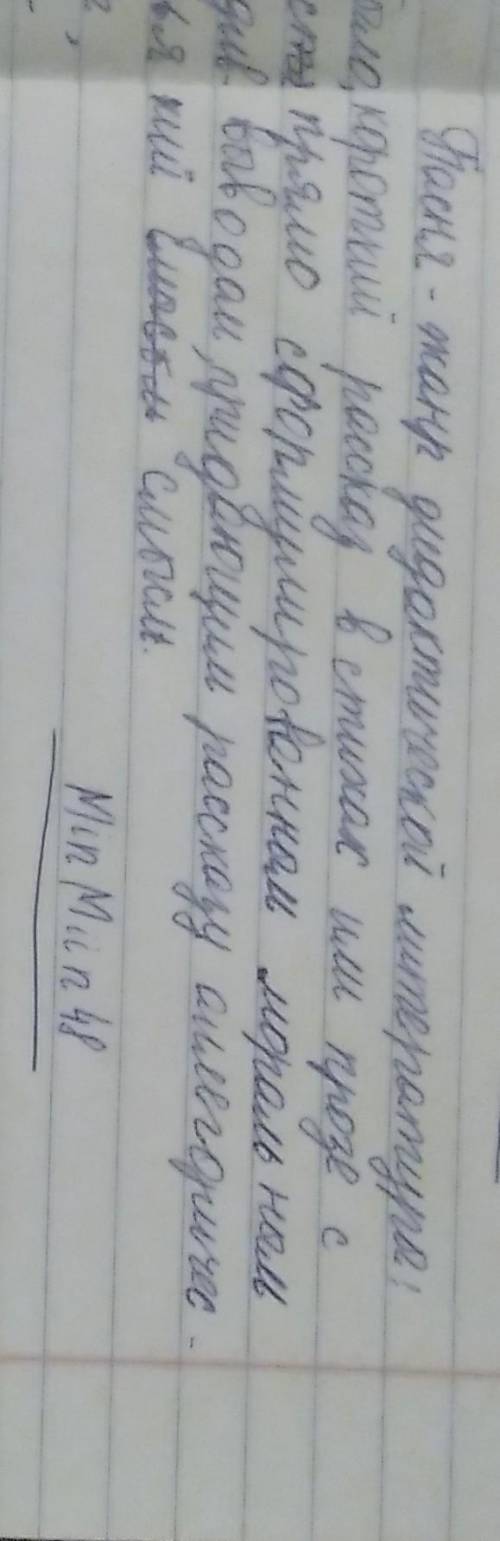 Басня - жанр дидактической литературы;
короткий рассказ в стихах или прозе с
прямо сформулированным моральным
выводом, придающим рассказу аллегоричес-
кий смысл.
MinMiin48